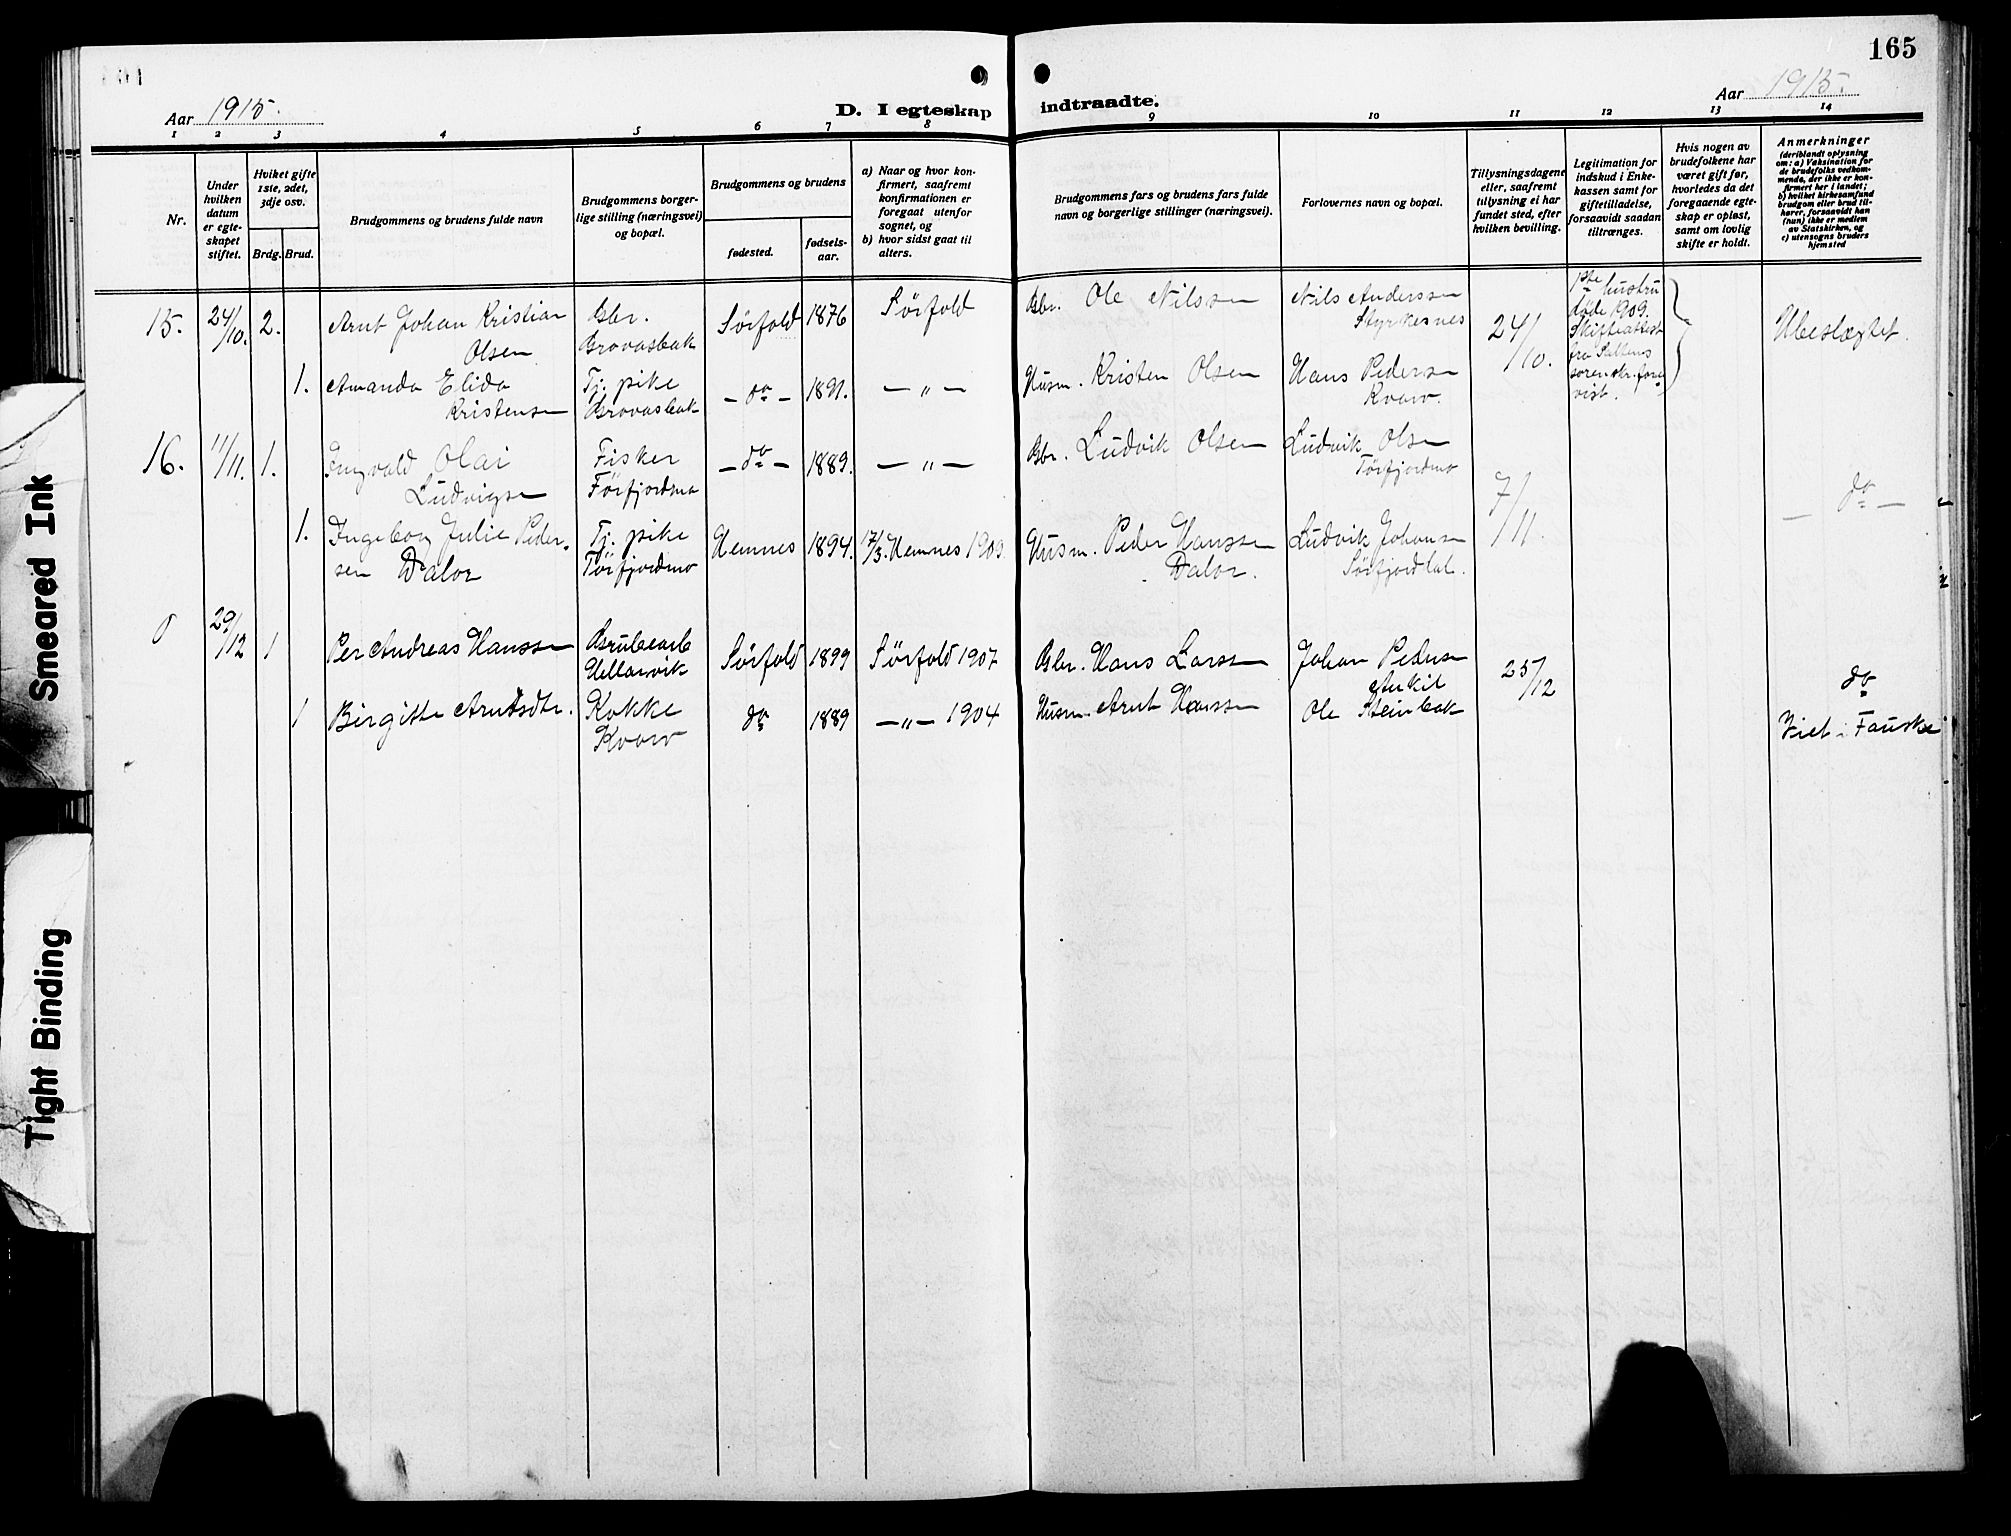 165
Aar 1915.
D. I egteskap indtraadte.
Aar 1915.
1 2 3 4 5 6 7 8 9 10 11 12 13 14
Nr.
Under hvilken datum er egteskapet stiftet.
Hvilket gifte 1ste, 2det, 3dje osv.
Brdg. Brud.
Brudgommens og brudens fulde navn
Brudgommens borgerlige stilling (næringsvei) og bopæl.
Brudgommens og brudens
fødested.
fødsels-aar.
a) Naar og hvor konfirmert, saafremt konfirmationen er foregaat utenfor sognet, og
b) hvor sidst gaat til alters.
Brudgommens fars og brudens fars fulde navn og borgerlige stillinger (næringsvei).
Forlovernes navn og bopæl.
Tillysningsdagene eller, saafremt tillysning ei har fundet sted, efter hvilken bevilling.
Legitimation for indskud i Enkekassen samt for giftetilladelse, forsaavidt saadan tiltrænges.
Hvis nogen av brudefolkene har været gift før, hvorledes da det foregaaende egteskap er opløst, samt om lovlig skifte er holdt.
Anmerkninger
(deriblandt oplysning om: a) Vaksination for de brudefolks vedkommende, der ikke er konfirmert her i landet; b) hvilket kirkesamfund brudgom eller brud tilhører, forsaavidt han (hun) ikke er medlem av Statskirken, og c) utensogns bruders hjemsted
15. 24/10. 2. Arnt Johan Kristian Olsen Gbr. Brovasbak Sørfold 1876 Sørfold Gbr. Ole Nilssen Nils Anderssen Styrkesnes 24/10. 1ste hustru døde 1909. Skifteattest fra Saltens sorenskr. forevist. Ubeslegtet.
1. Amanda Elida Kristensen Tj. pike Brovasbak – do – 1891. – „ – Husm. Kristen Olsen Hans Pedersen Kvarv.
16. 11/11. 1. Ingvald Olai Ludvigsen Fisker Tørfjordmo – do – 1889. – „ – Gbr. Ludvik Olsen Ludvik Olsen Tørfjordmo 7/11. – do –
1. Ingeborg Julie Pedersen Dalor Tj. pike Tørfjordmo Hemnes 1894. 17/3. Hemnes 1909. Husm. Peder Hanssen Dalor. Ludvik Johansen Sørfjorddal.
0 29/12 1 Per Andreas Hanssen Grubearb Hellarvik Sørfold 1899 Sørfold 1907 Gbr. Hans Larssen Johan Pedersen 25/12 do
1 Birgitte Arntsdtr. Kokke Kvarv do 1889 – „ – 1904 Husm. Arnt Hanssen Ole Steinbak Viet i Fauske
Smeared Ink
Tight Binding